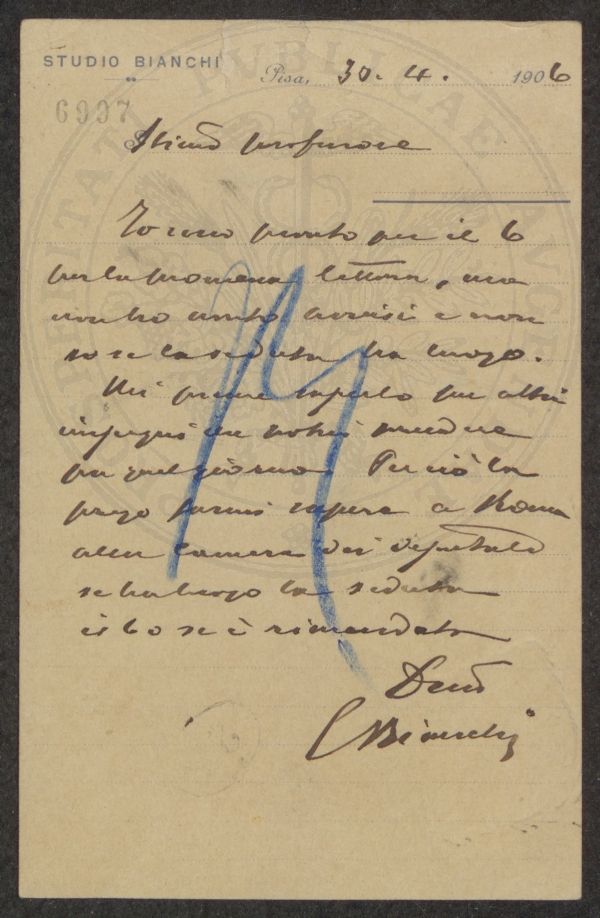 STUDIO BIANCHI
Pisa, 30. 4. 1906
6997
Stimo professore
Io sono pronto per il 6
per la promessa lettura, ma
non ho avuto avvisi e non
so se la seduta ha luogo.
Mi preme saperlo per altri
impegni che potrei prendere
per quel giorno Perciò la
prego farmi sapere a Roma
alla Camera dei deputati
se ha luogo la seduta
il 6 o se è rimandata
Devo
Bianchi